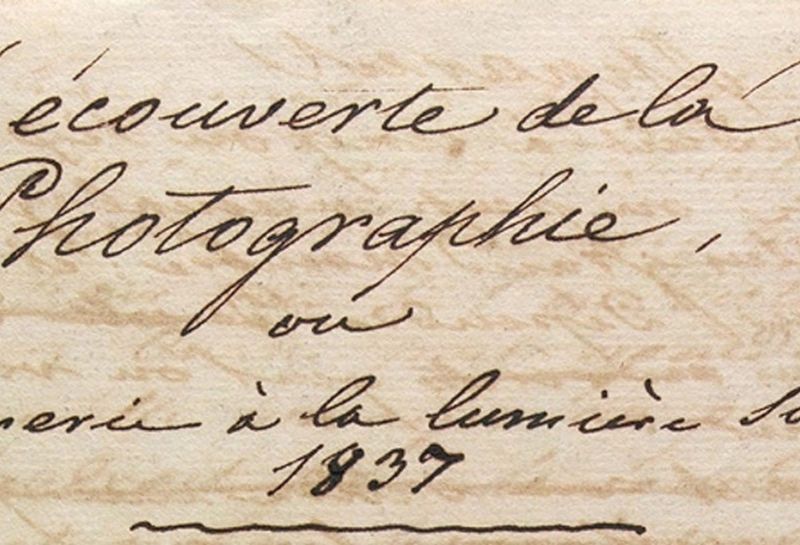 écouverte de la
Photographie,
ou
merie à la lumière so
1837